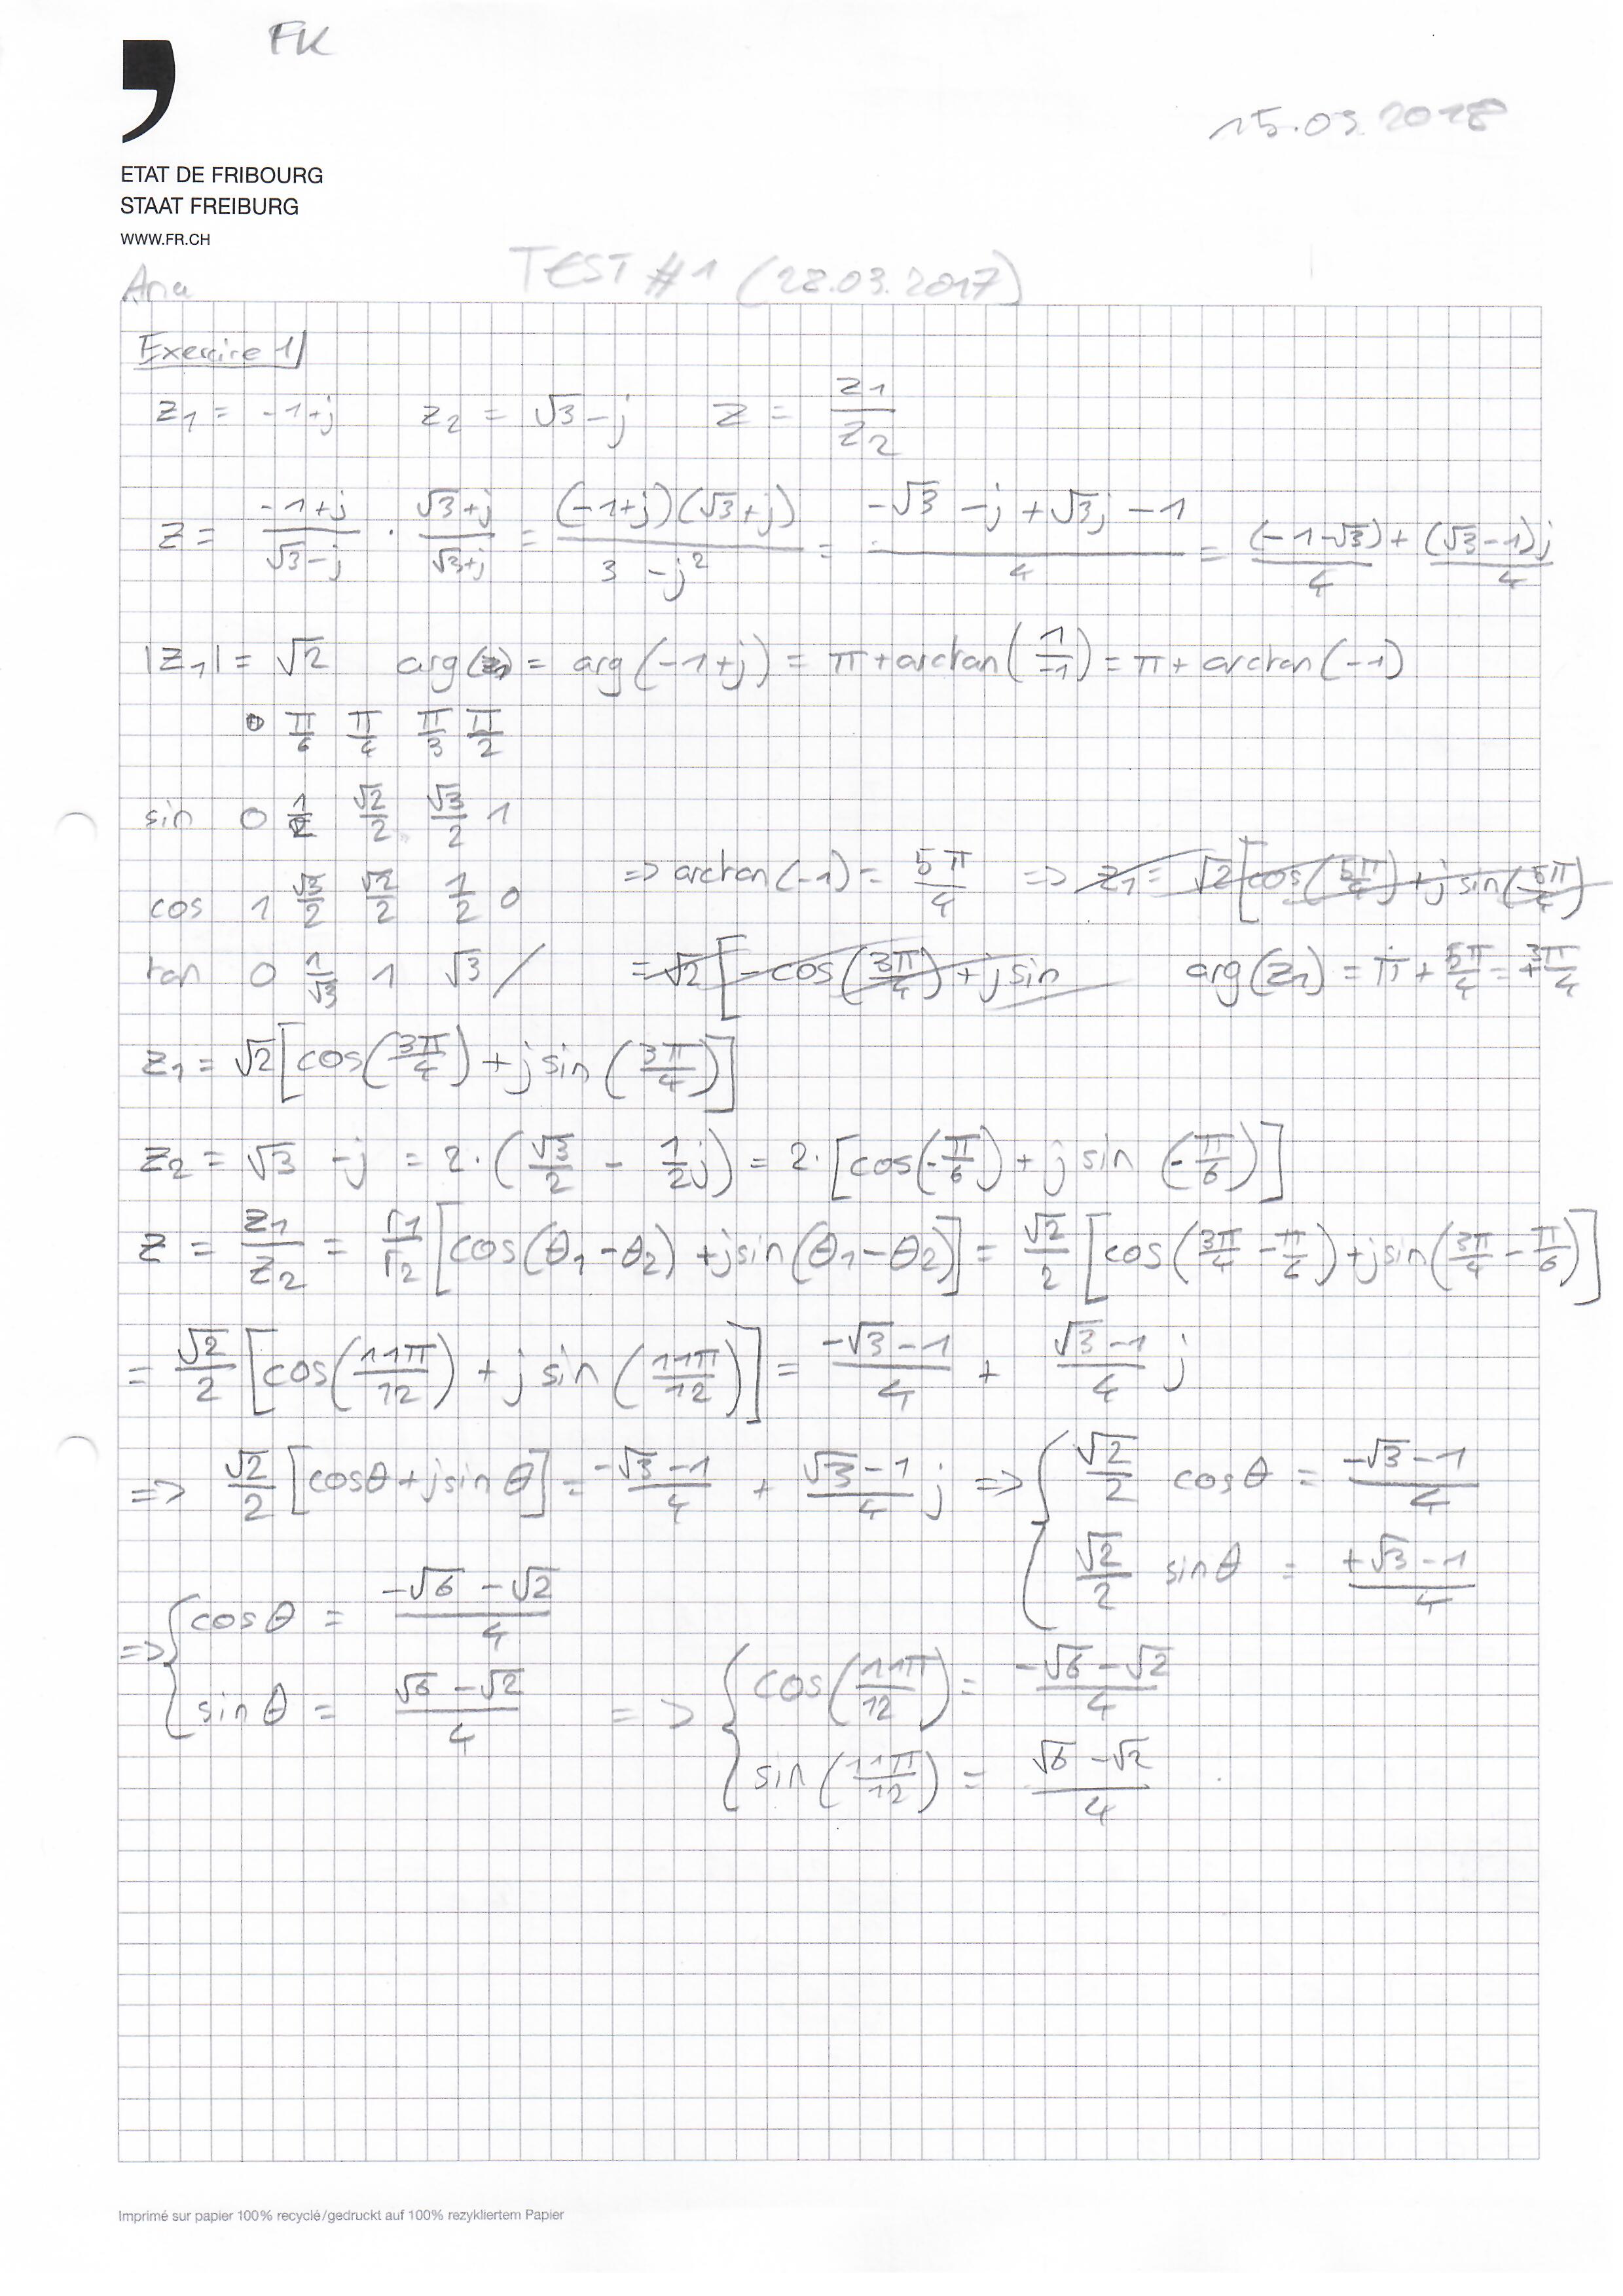 FK
15.03.2018
ETAT DE FRIBOURG
STAAT FREIBURG
WWW.FR.CH
Ana TEST #1 (28.03.2017)
Exercice 1
z₁ = -1+j z₂ = √3-j z = z₁/z₂
z = (-1+j)/(√3-j) · (√3+j)/(√3+j) = (-1+j)(√3+j)/(3 -j²) = (-√3 -j +√3j -1)/4 = (-1-√3)/4 + (√3-1)j/4
|z₁| = √2 arg(z₁) = arg(-1+j) = π+arctan(1/-1) = π+arctan(-1)
0 π/6 π/4 π/3 π/2
sin 0 1/2 √2/2 √3/2 1
cos 1 √3/2 √2/2 1/2 0 => arctan(-1) = 5π/4 => z₁ = √2[cos(5π/4)+j sin(5π/4)
tan 0 1/√3 1 √3 / = √2[-cos(3π/4)+j sin arg(z₁) = π + 5π/4 = +3π/4
z₁ = √2[cos(3π/4)+j sin(3π/4)]
z₂ = √3 -j = 2·(√3/2 - 1/2j) = 2·[cos(-π/6) + j sin(-π/6)]
z = z₁/z₂ = r₁/r₂[cos(θ₁-θ₂)+jsin(θ₁-θ₂)] = √2/2[cos(3π/4-π/6)+jsin(3π/4-π/6)]
= √2/2[cos(11π/12) + j sin(11π/12)] = (-√3-1)/4 + (√3-1)/4 j
=> √2/2[cosθ+jsinθ] = (-√3-1)/4 + (√3-1)/4 j => { √2/2 cosθ = (-√3-1)/4
√2/2 sinθ = (+√3-1)/4
=> { cosθ = (-√6-√2)/4
sinθ = (√6-√2)/4 => { cos(11π/12) = (-√6-√2)/4
sin(11π/12) = (√6-√2)/4
Imprimé sur papier 100% recyclé/gedruckt auf 100% rezykliertem Papier